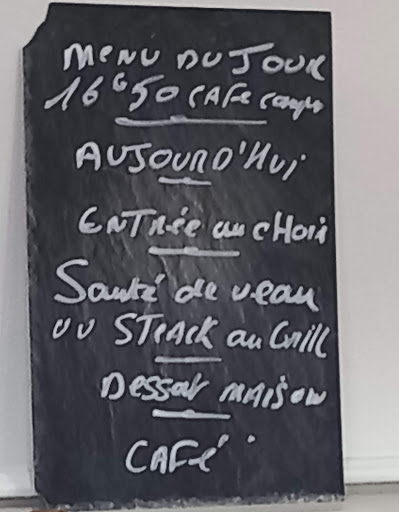 MENU DU JOUR
16€50 CAFE compris
AUJOURD'HUI
ENTRÉE au CHOIX
Sauté de veau
ou STEACK au Grill
DESSERT MAISON
CAFÉ